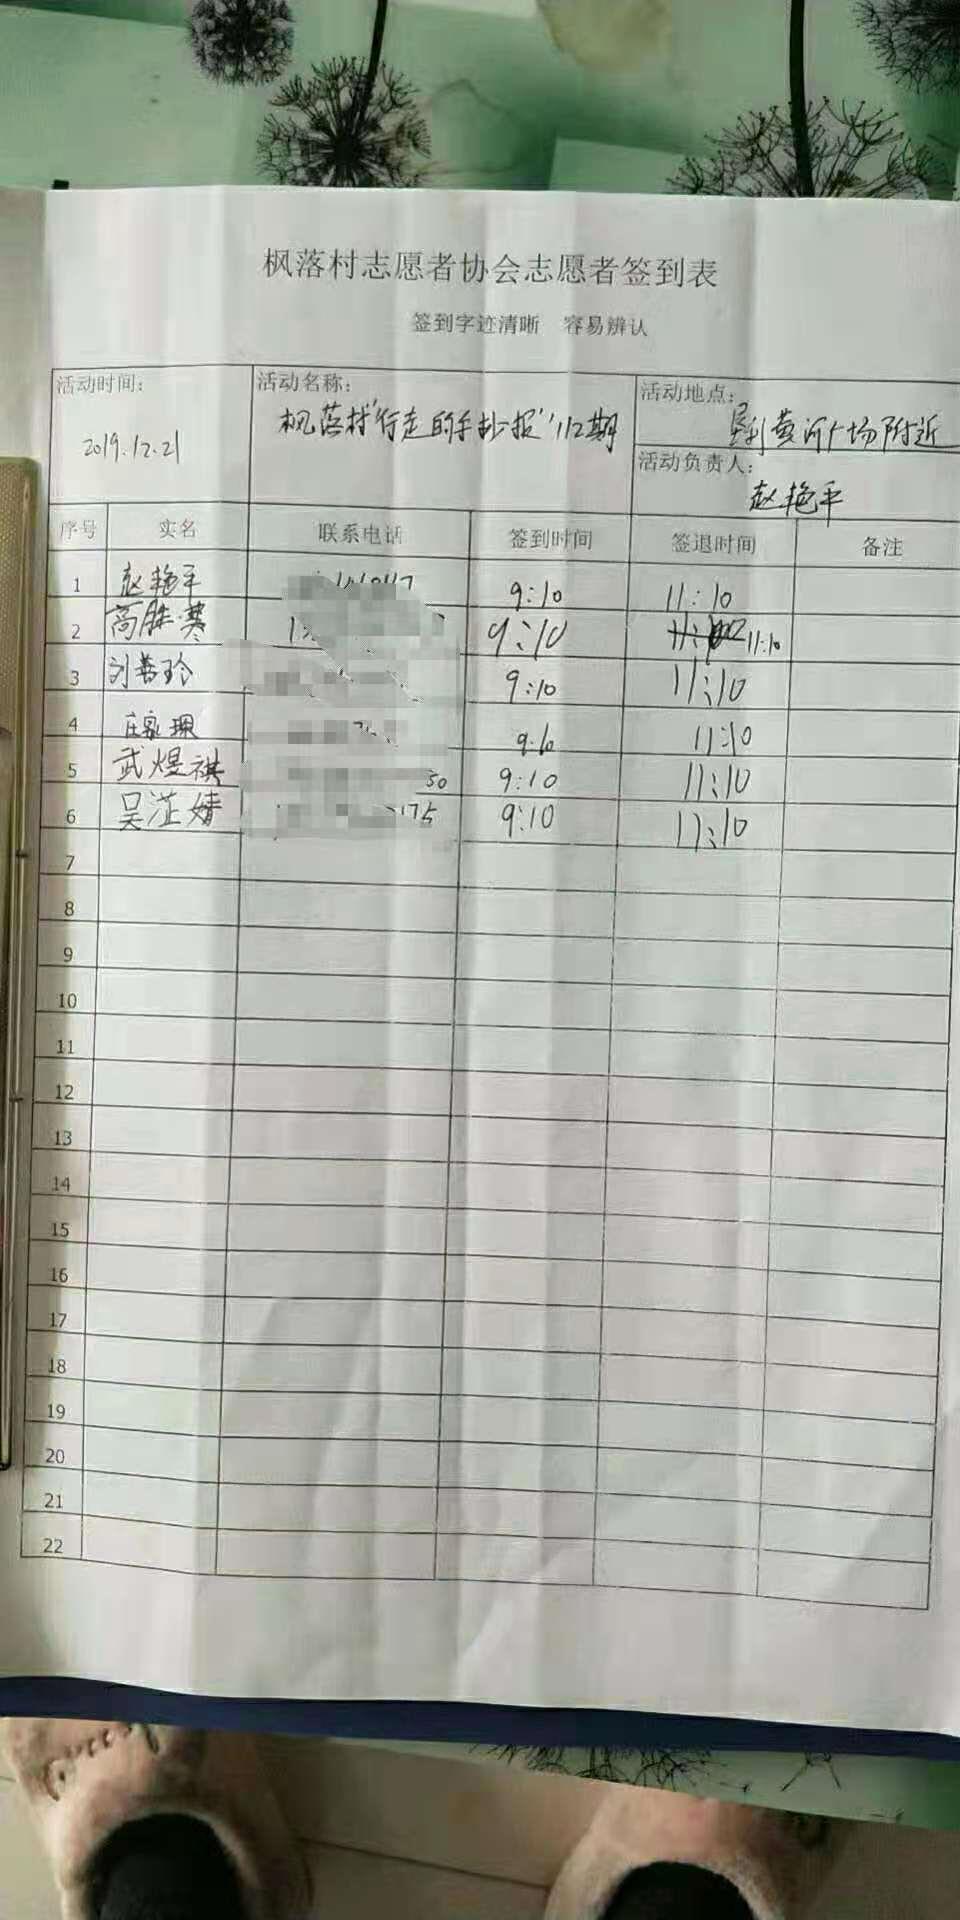 枫落村志愿者协会志愿者签到表
签到字迹清晰 容易辨认
活动时间: 活动名称: 活动地点:
2019.12.21 枫落村"行走的手抄报"112期 垦利黄河广场附近
活动负责人:
赵艳平
序号 实名 联系电话 签到时间 签退时间 备注
1 赵艳平 9:10 11:10
2 高胜寒 9:10 11:10
3 刘善玲 9:10 11:10
4 庄家琪 9:10 11:10
5 武煜祺 50 9:10 11:10
6 吴芷婧 175 9:10 11:10
7
8
9
10
11
12
13
14
15
16
17
18
19
20
21
22